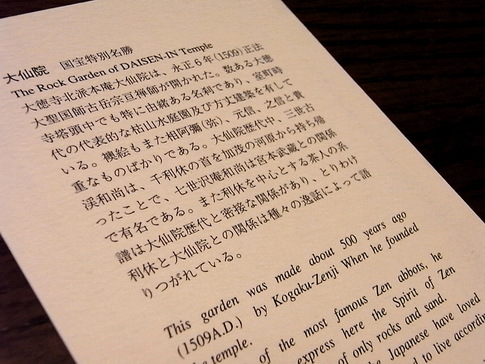 大仙院 国宝特別名勝
The Rock Garden of DAISEN-IN Temple
大徳寺北派本庵大仙院は、永正6年(1509)正法
大聖国師古岳宗亘禅師が開かれた。数ある大徳
寺塔頭中でも特に由緒ある名刹であり、室町時
代の代表的な枯山水庭園及び方丈建築を有して
いる。襖絵もまた相阿弥(弥)、元信、之信と貴
重なものばかりである。大仙院歴代中、三世古
渓和尚は、千利休の首を加茂の河原から持ち帰
ったことで、七世沢庵和尚は宮本武蔵との関係
で有名である。また利休を中心とする茶人の系
譜は大仙院歴代と密接な関係があり、とりわけ
利休と大仙院との関係は種々の逸話によって語
りつがれている。
This garden was made about 500 years ago
(1509A.D.) by Kogaku-Zenji When he founded
temple.
of the most famous Zen abbots, he
express here the Spirit of Zen
of only rocks and sand.
the Japanese have loved
live according